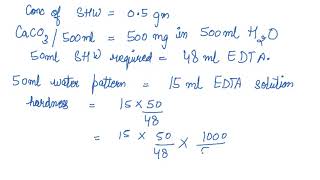 Conc of SHW = 0.5 gm
CaCO3/500ml = 500 mg in 500ml H2O
50ml SHW required = 48 ml EDTA.
50ml water pattern = 15 ml EDTA solution
hardness = 15 × 50/48
= 15 × 50/48 × 1000/5